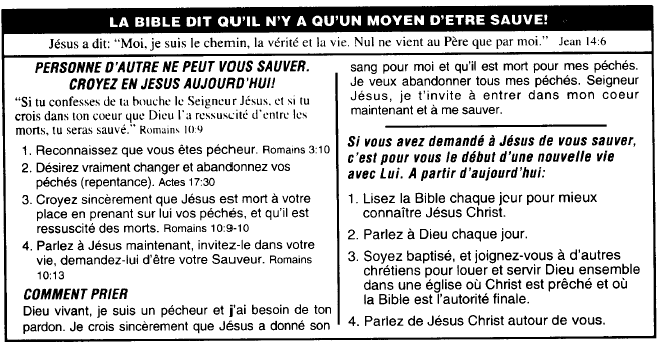 LA BIBLE DIT QU'IL N'Y A QU'UN MOYEN D'ETRE SAUVE!
Jésus a dit: “Moi, je suis le chemin, la vérité et la vie. Nul ne vient au Père que par moi.” Jean 14:6
PERSONNE D'AUTRE NE PEUT VOUS SAUVER.
CROYEZ EN JESUS AUJOURD'HUI!
“Si tu confesses de ta bouche le Seigneur Jésus, et si tu
crois dans ton coeur que Dieu l'a ressuscité d'entre les
morts, tu seras sauvé.” Romains 10:9
1. Reconnaissez que vous êtes pécheur. Romains 3:10
2. Désirez vraiment changer et abandonnez vos
péchés (repentance). Actes 17:30
3. Croyez sincèrement que Jésus est mort à votre
place en prenant sur lui vos péchés, et qu'il est
ressuscité des morts. Romains 10:9-10
4. Parlez à Jésus maintenant, invitez-le dans votre
vie, demandez-lui d'être votre Sauveur. Romains
10:13
COMMENT PRIER
Dieu vivant, je suis un pécheur et j'ai besoin de ton
pardon. Je crois sincèrement que Jésus a donné son
sang pour moi et qu'il est mort pour mes péchés.
Je veux abandonner tous mes péchés. Seigneur
Jésus, je t'invite à entrer dans mon coeur
maintenant et à me sauver.
Si vous avez demandé à Jésus de vous sauver,
c'est pour vous le début d'une nouvelle vie
avec Lui. A partir d'aujourd'hui:
1. Lisez la Bible chaque jour pour mieux
connaître Jésus Christ.
2. Parlez à Dieu chaque jour.
3. Soyez baptisé, et joignez-vous à d'autres
chrétiens pour louer et servir Dieu ensemble
dans une église où Christ est prêché et où
la Bible est l'autorité finale.
4. Parlez de Jésus Christ autour de vous.